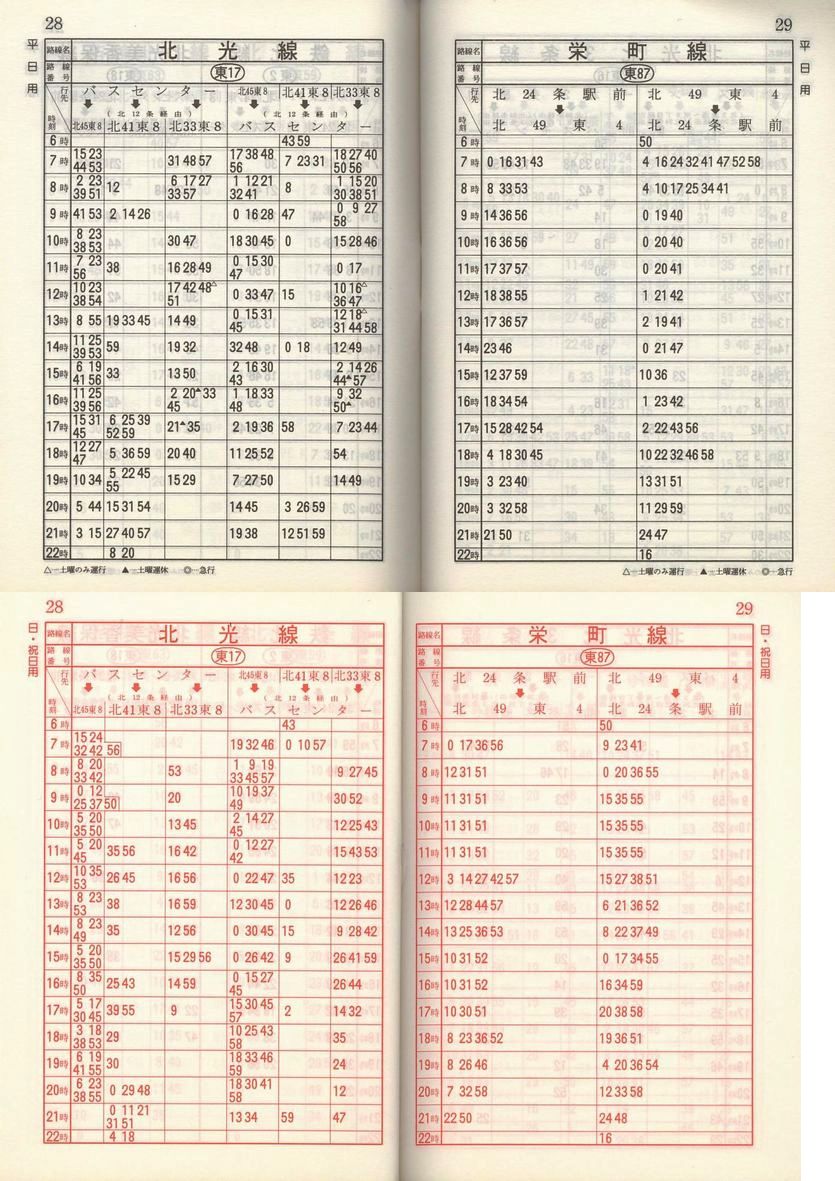 28
平日用
路線名 北光線
路線番号 東17
行先 バスセンター 北45東8 北41東8 北33東8
(北12条経由) (北12条経由)
時刻 北45東8 北41東8 北33東8 バスセンター
6時 43 59
7時 15 23 44 53 31 48 57 17 38 48 56 7 23 31 18 27 40 50 56
8時 2 23 39 51 12 6 17 27 33 57 1 12 21 32 41 8 1 15 20 30 38 51
9時 41 53 2 14 26 0 16 28 47 0 9 27 58
10時 8 23 38 53 30 47 18 30 45 0 15 28 46
11時 7 23 56 38 16 28 49 0 15 30 47 0 17
12時 10 23 38 54 17 42 48△ 51 0 33 47 15 10 16△ 36 47
13時 8 55 19 33 45 14 49 0 15 31 45 12 18△ 31 44 58
14時 11 25 39 53 59 19 32 32 48 0 18 12 49
15時 6 19 41 56 33 13 50 2 16 30 43 2 14 26 44▲ 57
16時 11 25 39 56 2 20▲ 33 45 1 18 33 48 9 32 50▲
17時 15 31 45 6 25 39 52 59 21▲ 35 2 19 36 58 7 23 44
18時 12 27 47 5 36 59 20 40 11 25 52 54
19時 10 34 5 22 45 55 15 29 7 27 50 14 49
20時 5 44 15 31 54 14 45 3 26 59
21時 3 15 27 40 57 19 38 12 51 59
22時 8 20
△―土曜のみ運行 ▲―土曜運休 ◎―急行
29
平日用
路線名 栄町線
路線番号 東87
行先 北24条駅前 北49東4
時刻 北49東4 北24条駅前
6時 50
7時 0 16 31 43 4 16 24 32 41 47 52 58
8時 8 33 53 4 10 17 25 34 41
9時 14 36 56 0 19 40
10時 16 36 56 0 20 40
11時 17 37 57 0 20 41
12時 18 38 55 1 21 42
13時 17 36 57 2 19 41
14時 23 46 0 21 47
15時 12 37 59 10 36
16時 18 34 54 1 23 42
17時 15 28 42 54 2 22 43 56
18時 4 18 30 45 10 22 32 46 58
19時 3 23 40 13 31 51
20時 3 32 58 11 29 59
21時 21 50 24 47
22時 16
△―土曜のみ運行 ▲―土曜運休 ◎―急行
28
日・祝日用
路線名 北光線
路線番号 東17
行先 バスセンター 北45東8 北41東8 北33東8
(北12条経由) (北12条経由)
時刻 北45東8 北41東8 北33東8 バスセンター
6時 43
7時 15 24 32 42 56 19 32 46 0 10 57
8時 8 20 33 42 53 1 9 19 33 45 57 9 27 45
9時 0 12 25 37 50 20 10 19 37 49 30 52
10時 5 20 35 50 13 45 2 14 27 45 12 25 43
11時 5 20 45 35 56 16 42 0 12 27 42 15 43 53
12時 10 35 53 26 45 16 56 0 22 47 35 12 23
13時 8 23 53 38 16 59 12 30 45 0 12 26 46
14時 8 23 49 35 12 56 0 30 45 15 9 28 42
15時 5 20 35 50 15 29 56 0 26 42 9 26 41 59
16時 8 35 50 25 43 14 59 0 15 27 45 26 44
17時 5 17 30 45 39 55 9 15 30 45 57 2 14 32
18時 3 18 38 53 29 10 25 43 58 35
19時 6 19 41 55 30 18 33 46 59 24
20時 6 23 38 55 0 29 48 18 30 41 58 12
21時 0 11 21 31 51 13 34 59 47
22時 4 18
29
日・祝日用
路線名 栄町線
路線番号 東87
行先 北24条駅前 北49東4
時刻 北49東4 北24条駅前
6時 50
7時 0 17 36 56 9 23 41
8時 12 31 51 0 20 36 55
9時 11 31 51 15 35 55
10時 11 31 51 15 35 55
11時 11 31 51 15 35 55
12時 3 14 27 42 57 15 27 38 51
13時 12 28 44 57 6 21 36 52
14時 13 25 36 53 8 22 37 49
15時 10 31 52 0 17 34 55
16時 10 31 52 16 34 59
17時 10 30 51 20 38 58
18時 8 23 36 52 19 36 51
19時 8 26 46 4 20 36 54
20時 7 32 58 12 33 58
21時 22 50 24 48
22時 16